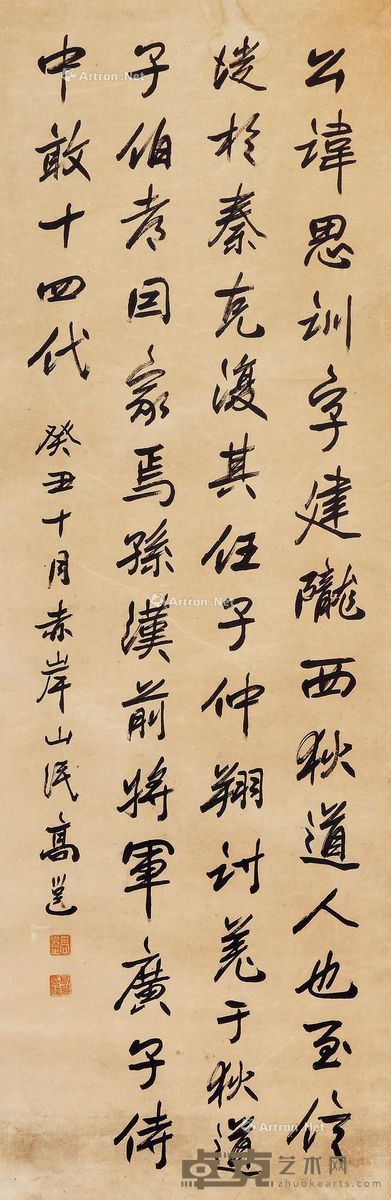 公諱思訓字建隴西狄道人也至信
徙於秦克復其任子仲翔討羌于狄道
子伯考因家焉孫漢前將軍廣子侍
中敢十四代
癸丑十月赤岸山民高邕
Artron.Net
Artron.Net
Artron.Net
Artron.Net
Artron.Net
卓克艺术网
www.zhuokearts.com